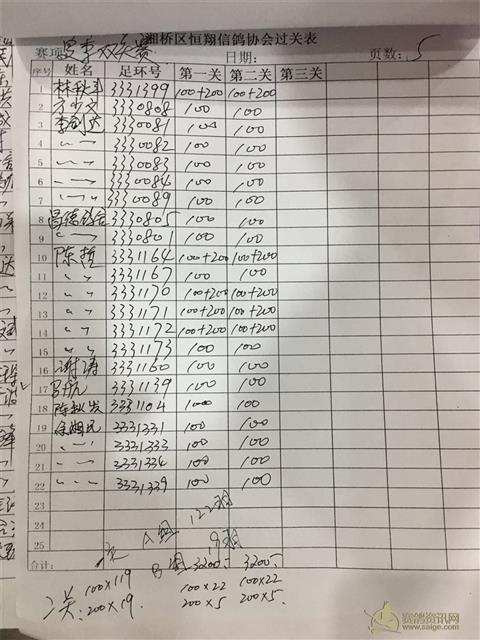 湘桥区恒翔信鸽协会过关表
赛项: 冬季双关赛 日期: 页数: 5
序号 姓名 足环号 第一关 第二关 第三关
1 林秋丰 3331399 100+200 100+200
2 方少文 3330808 100 100
3 李剑达 3330081 100 100
4 〃 3330082 100 100
5 〃 3330083 100 100
6 〃 3330084 100 100
7 〃 3330089 100 100
8 昌德鸽舍 3330805 100 100
9 〃 3330801 100 100
10 陈哲 3331164 100+200 100+200
11 〃 3331167 100 100
12 〃 3331170 100+200 100+200
13 〃 3331171 100+200 100+200
14 〃 3331172 100+200 100+200
15 〃 3331173 100 100
16 谢涛 3331160 100 100
17 吕航 3331139 100 100
18 陈秋发 3331104 100 100
19 3331331 100 100
20 〃 3331333 100 100
21 〃 3331334 100 100
22 〃 3331339 100 100
23
24 A组 122羽
25 B组 19羽
合计: 3200- 3200-
二关: 100×119 100×22 100×22
200×19. 200×5 200×5.
赛鸽资讯网
www.saige.com